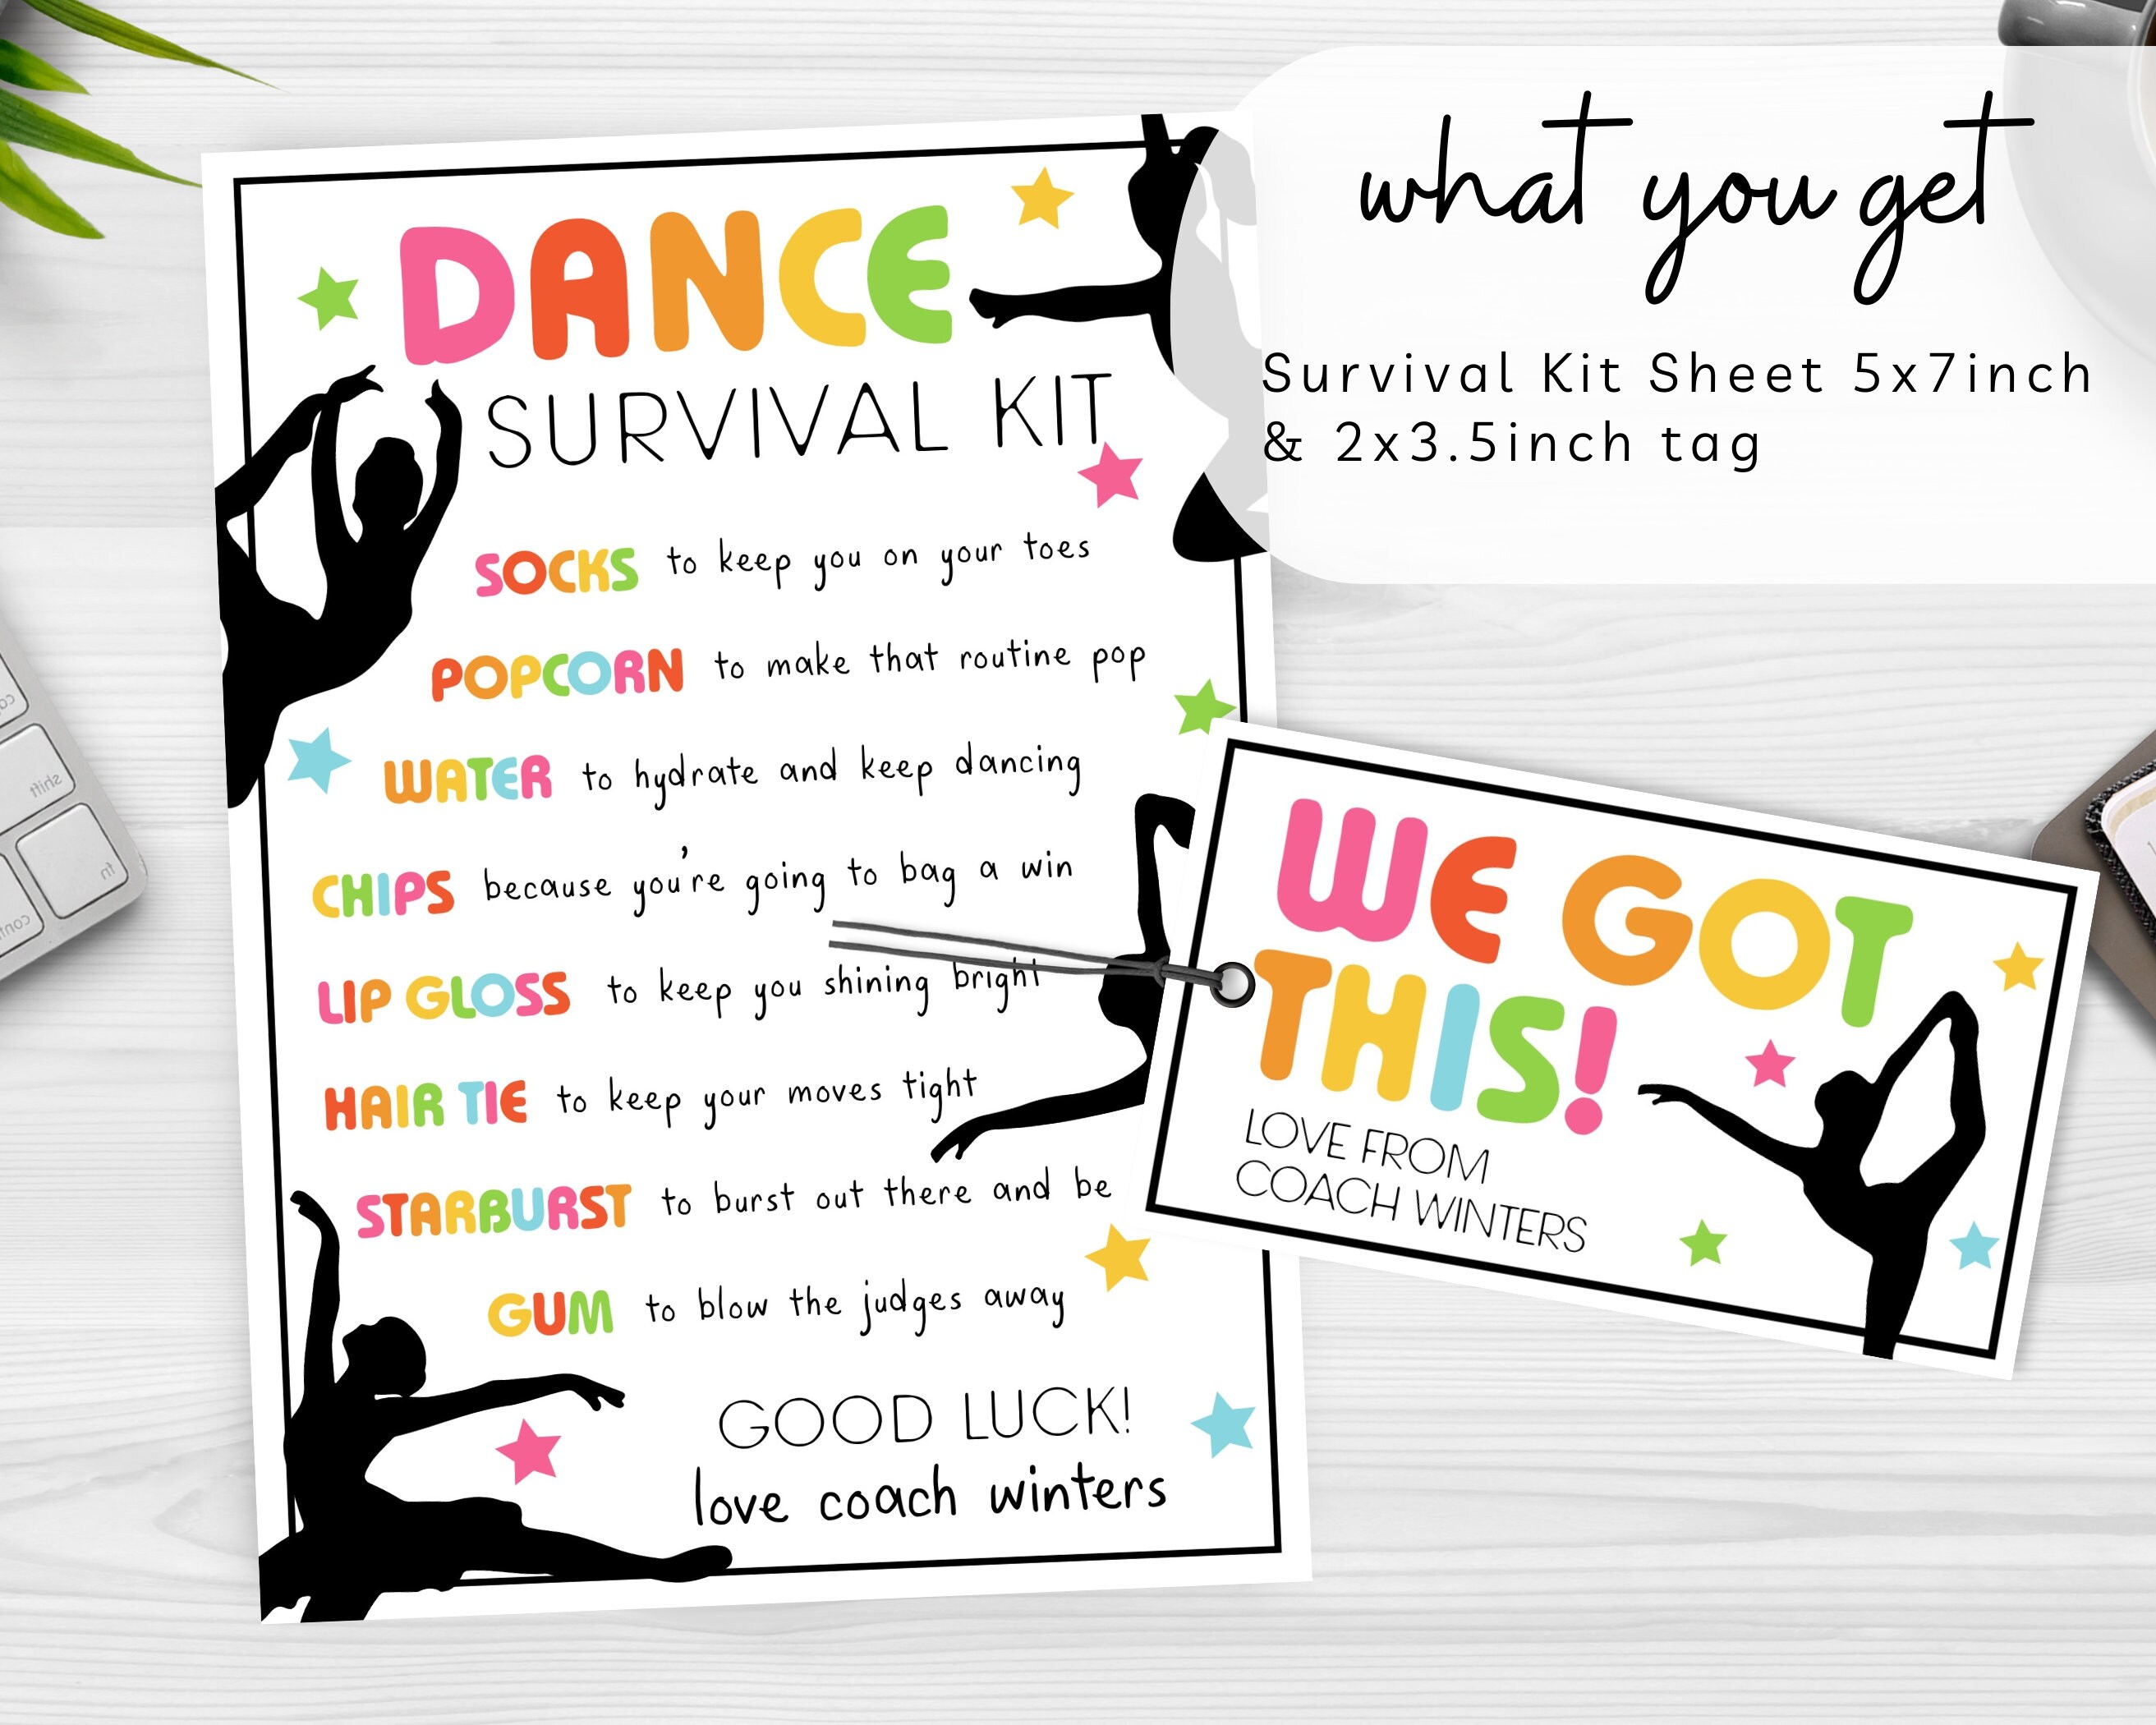 what you get
Survival Kit Sheet 5x7inch
& 2x3.5inch tag
DANCE
SURVIVAL KIT
SOCKS to keep you on your toes
POPCORN to make that routine pop
WATER to hydrate and keep dancing
CHIPS because you're going to bag a win
LIP GLOSS to keep you shining bright
HAIR TIE to keep your moves tight
STARBURST to burst out there and be
GUM to blow the judges away
GOOD LUCK!
love coach winters
WE GOT
THIS!
LOVE FROM
COACH WINTERS
shift
fn